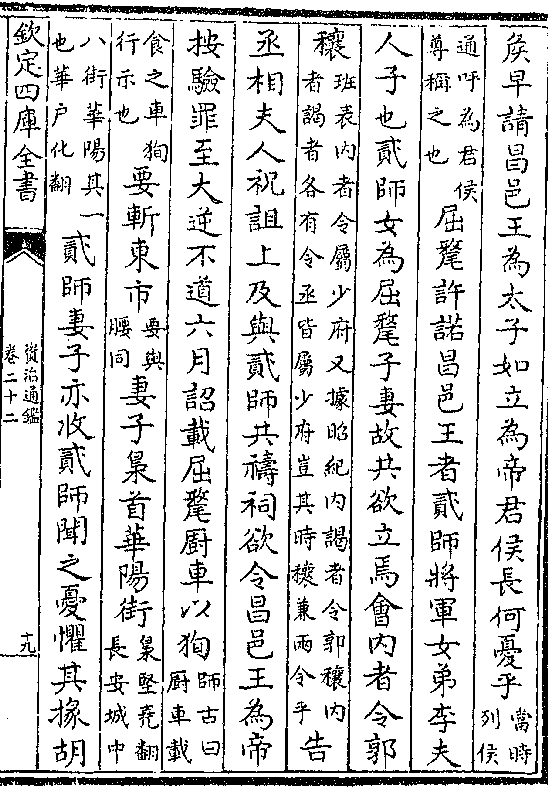 侯早請昌邑王為太子如立為帝君侯長何憂乎當時列侯
通呼為君侯尊稱之也屈氂許諾昌邑王者貳師將軍女弟李夫
人子也貳師女為屈氂子妻故共欲立焉會內者令郭
穰班表內者令屬少府又據昭紀內謁者令郭穰內者謁者各有令丞皆屬少府豈其時穰兼兩令乎告
丞相夫人祝詛上及與貳師共禱祠欲令昌邑王為帝
按驗罪至大逆不道六月詔載屈氂厨車以狥師古曰厨車載
食之車狥行示也要斬東市要與腰同妻子梟首華陽街梟堅堯翻長安城中
八街華陽其一也華户化翻貳師妻子亦收貳師聞之憂懼其掾胡
欽定四庫全書
資治通鑑
卷二十二
十九